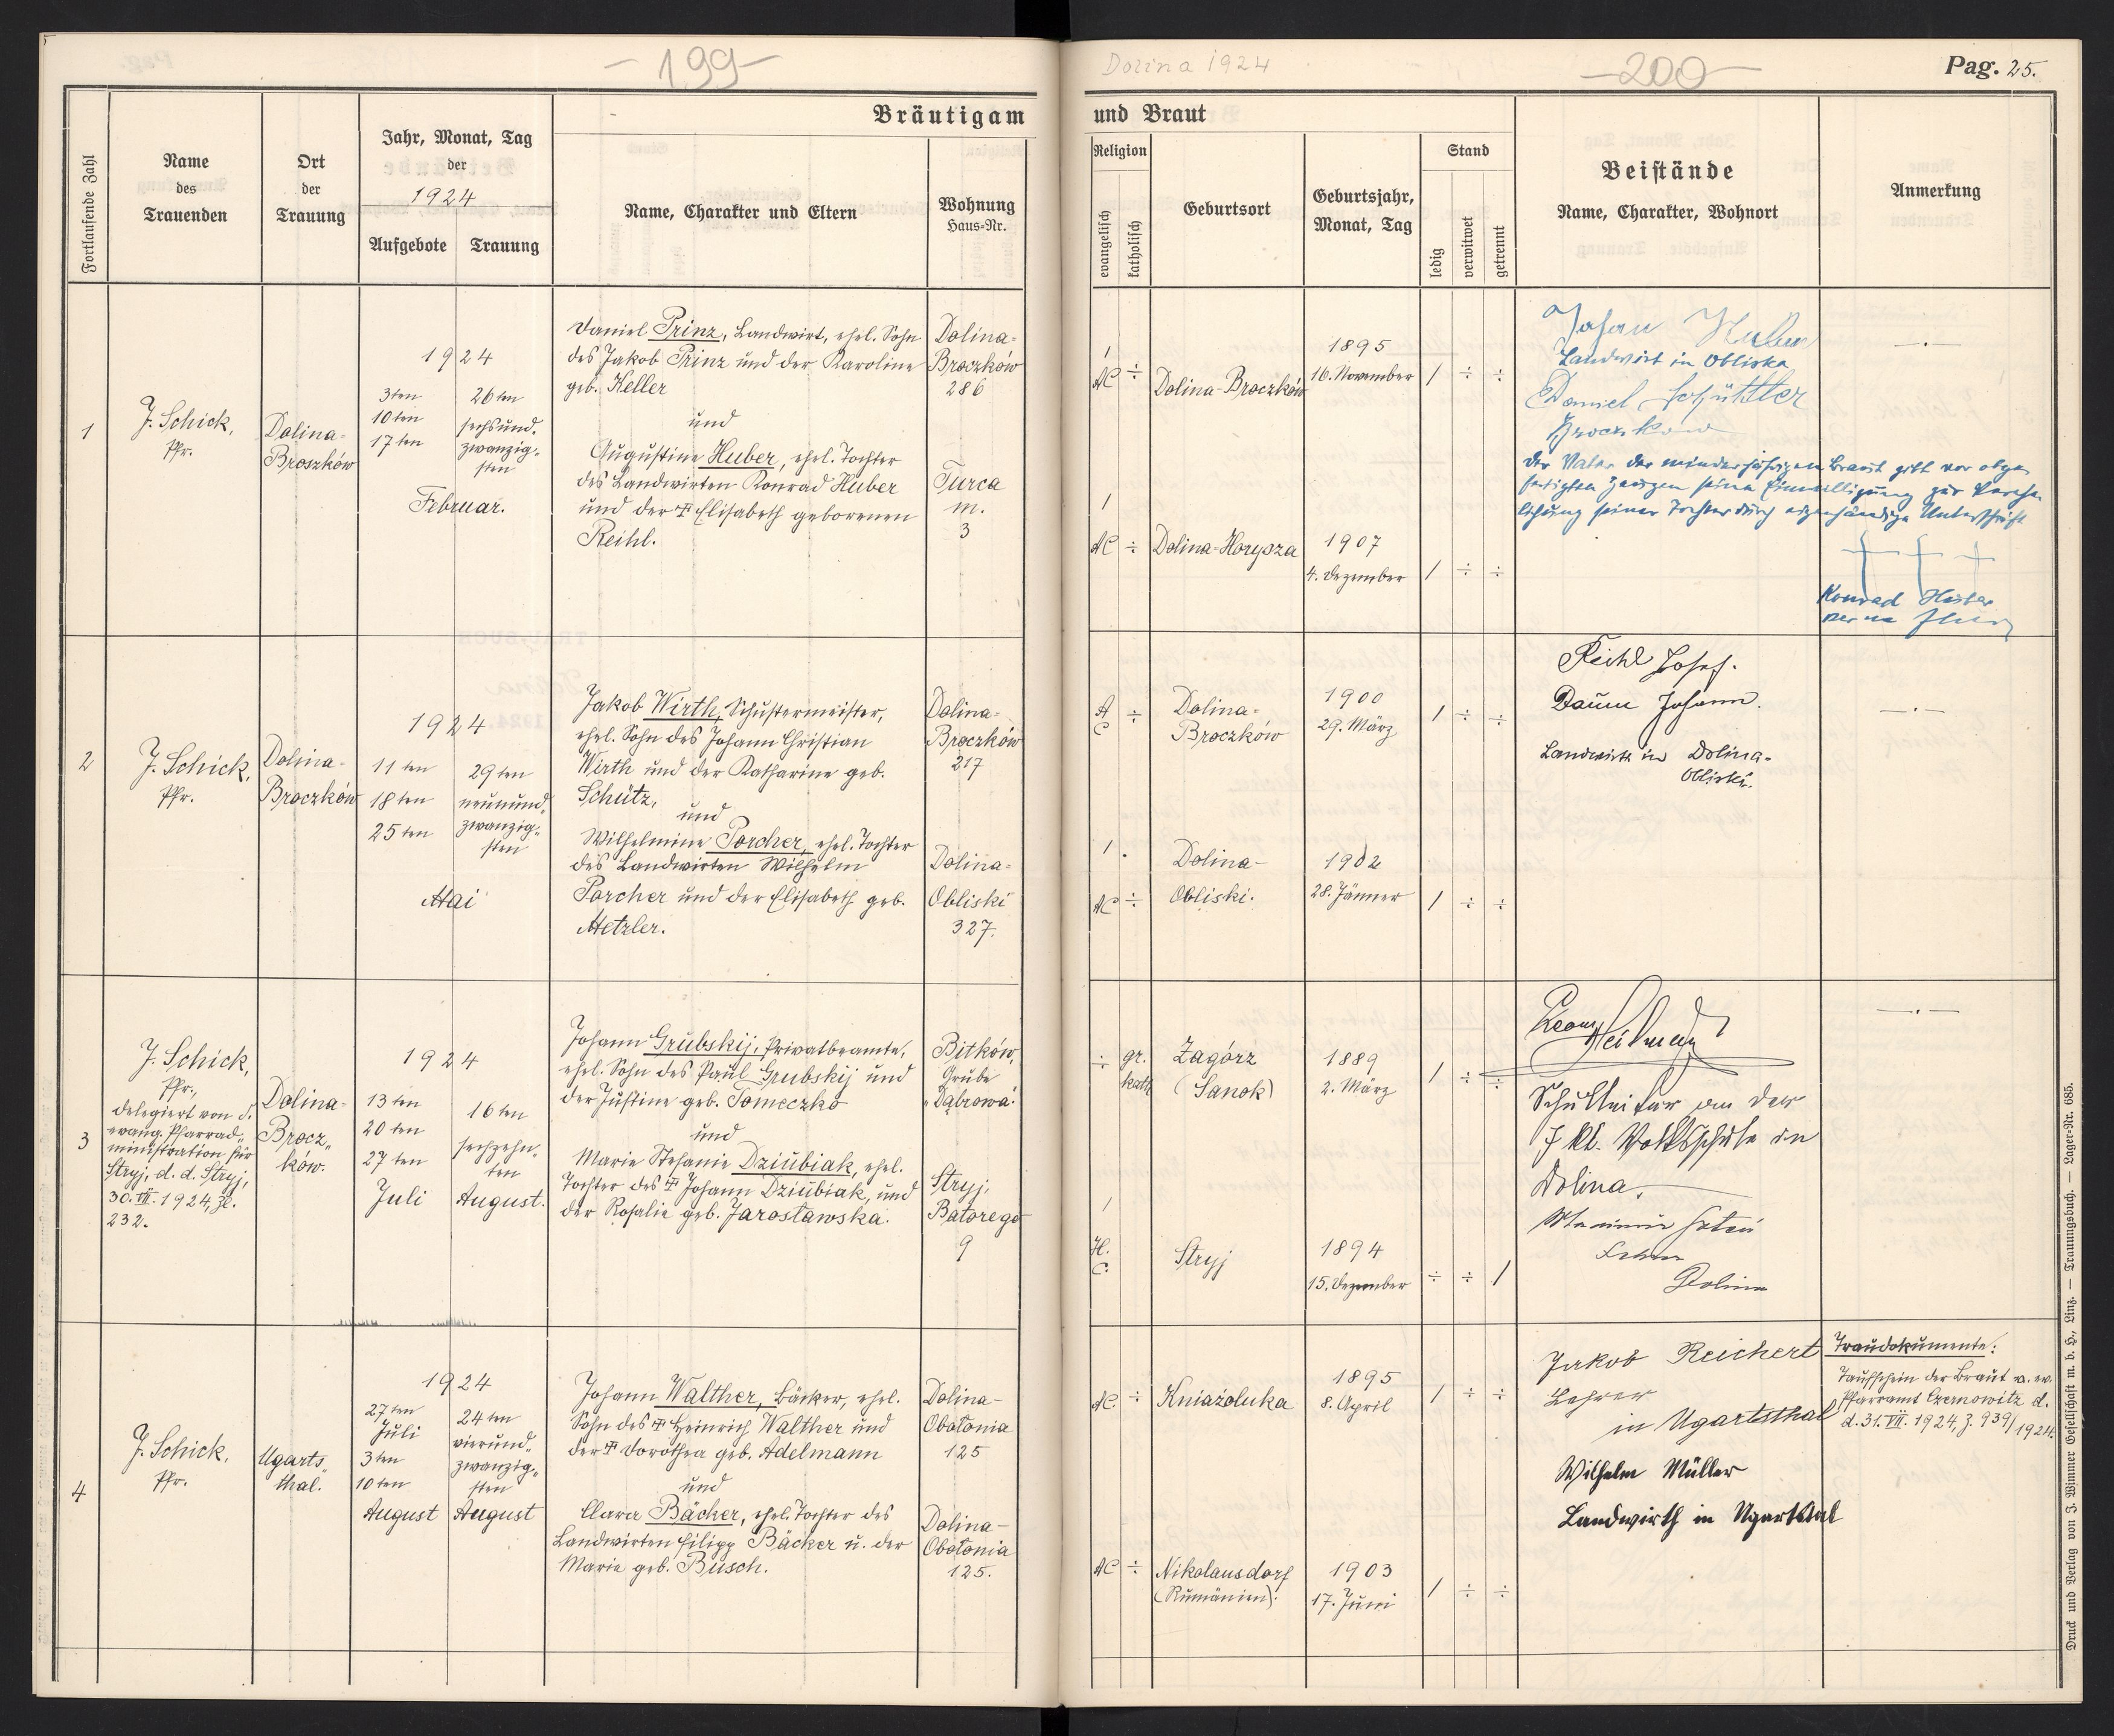 - 199 -
Dolina 1924
- 200 -
Pag. 25.
Bräutigam
und Braut
Fortlaufende Zahl
Name
des
Trauenden
Ort
der
Trauung
Jahr, Monat, Tag
der
1924
Aufgebote
Trauung
Name, Charakter und Eltern
Wohnung
Haus-Nr.
Religion
evangelisch
katholisch
Geburtsort
Geburtsjahr,
Monat, Tag
Stand
ledig
verwitwet
getrennt
Beistände
Name, Charakter, Wohnort
Anmerkung
1
J. Schick,
Pfr.
Dolina-
Broszków
1924
3ten
10ten
17ten
26ten
sechsund-
zwanzig-
sten
Februar.
Daniel Prinz, Landwirt, ehel. Sohn
des Jakob Prinz und der Karoline
geb. Keller
und
Augustine Huber, ehel. Tochter
des Landwirten Konrad Huber
und der Elisabeth geborenen
Reihl.
Dolina-
Broczków
286
Turca
m.
3
/
AC ÷
Dolina-Broczków
1895
16. November
/ ÷ ÷
/
AC ÷
Dolina-Horysza
1907
4. Dezember
/ ÷ ÷
Johan Huber
Landwirt in Obliska
Daniel Schüttler
Broczkow
Der Vater der minderjährigen Braut gibt vor obge-
fertigten Zeugen seine Einwilligung zur Verehe-
lichung seiner Tochter durch eigenhändige Unterschrift
Konrad Huber
— . —
2
J. Schick,
Pfr.
Dolina-
Broczków
1924
11ten
18ten
25ten
29ten
neunund-
zwanzig-
sten
Mai
Jakob Wirth, Schustermeister,
ehel. Sohn des Johann Christian
Wirth und der Katharine geb.
Schütz,
und
Wilhelmine Porcher, ehel. Tochter
des Landwirten Wilhelm
Porcher und der Elisabeth geb.
Metzler.
Dolina-
Broczków
217
Dolina-
Obliski
327.
A
C ÷
Dolina-
Broczków
1900
29. März
/ ÷ ÷
/
AC ÷
Dolina-
Obliski.
1902
28. Jänner
/ ÷ ÷
Reihl Josef.
Daum Johann.
Landwirte in Dolina-
Obliski.
— . —
3
J. Schick,
Pfr.,
delegiert von d.
evang. Pfarrad-
ministration für
Stryj, d. d. Stryj,
30. VII. 1924, Zl.
232.
Dolina-
Brocz-
ków.
1924
13ten
20ten
27ten
Juli
16ten
sechzehn-
ten
August.
Johann Grubskij, Privatbeamte,
ehel. Sohn des Paul Grubskij und
der Justine geb. Tomeczko
und
Marie Stefanie Dziubiak, ehel.
Tochter des Johann Dziubiak, und
der Rosalie geb. Jarosławska.
Bitków,
Grube
"Dąbrowa"
Stryj,
Batorego
9
÷ gr.
kath.
Zagórz
(Sanok)
1889
2. März
/ ÷ ÷
/
H.
C.
Stryj
1894
15. Dezember
÷ ÷ /
Schulleiter an der
7 kl. Volksschule in
Dolina.
Dolina
— . —
4
J. Schick,
Pfr.
Ugarts-
thal.
1924
27ten
Juli
3ten
10ten
August
24ten
vierund-
zwanzig-
sten
August
Johann Walther, Bäcker, ehel.
Sohn des Heinrich Walther und
der Dorothea geb. Adelmann
und
Clara Bäcker, ehel. Tochter des
Landwirten Filipp Bäcker u. der
Marie geb. Busch.
Dolina-
Obołonia
125
Dolina-
Obołonia
125.
AC. ÷
Kniażoluka
1895
8. April
/ ÷ ÷
AC ÷
Nikolausdorf
(Rumänien).
1903
17. Juni
/ ÷ ÷
Jakob Reichert
Lehrer
in Ugartsthal
Wilhelm Müller
Landwirth in Ugartstal
Traudokumente:
Taufschein der Braut v. ev.
Pfarramt Czernowitz d.
d. 31. VII. 1924, Z. 939/1924.
Druck und Verlag von J. Wimmer Gesellschaft m. b. H., Linz. — Trauungsbuch. — Lager-Nr. 685.